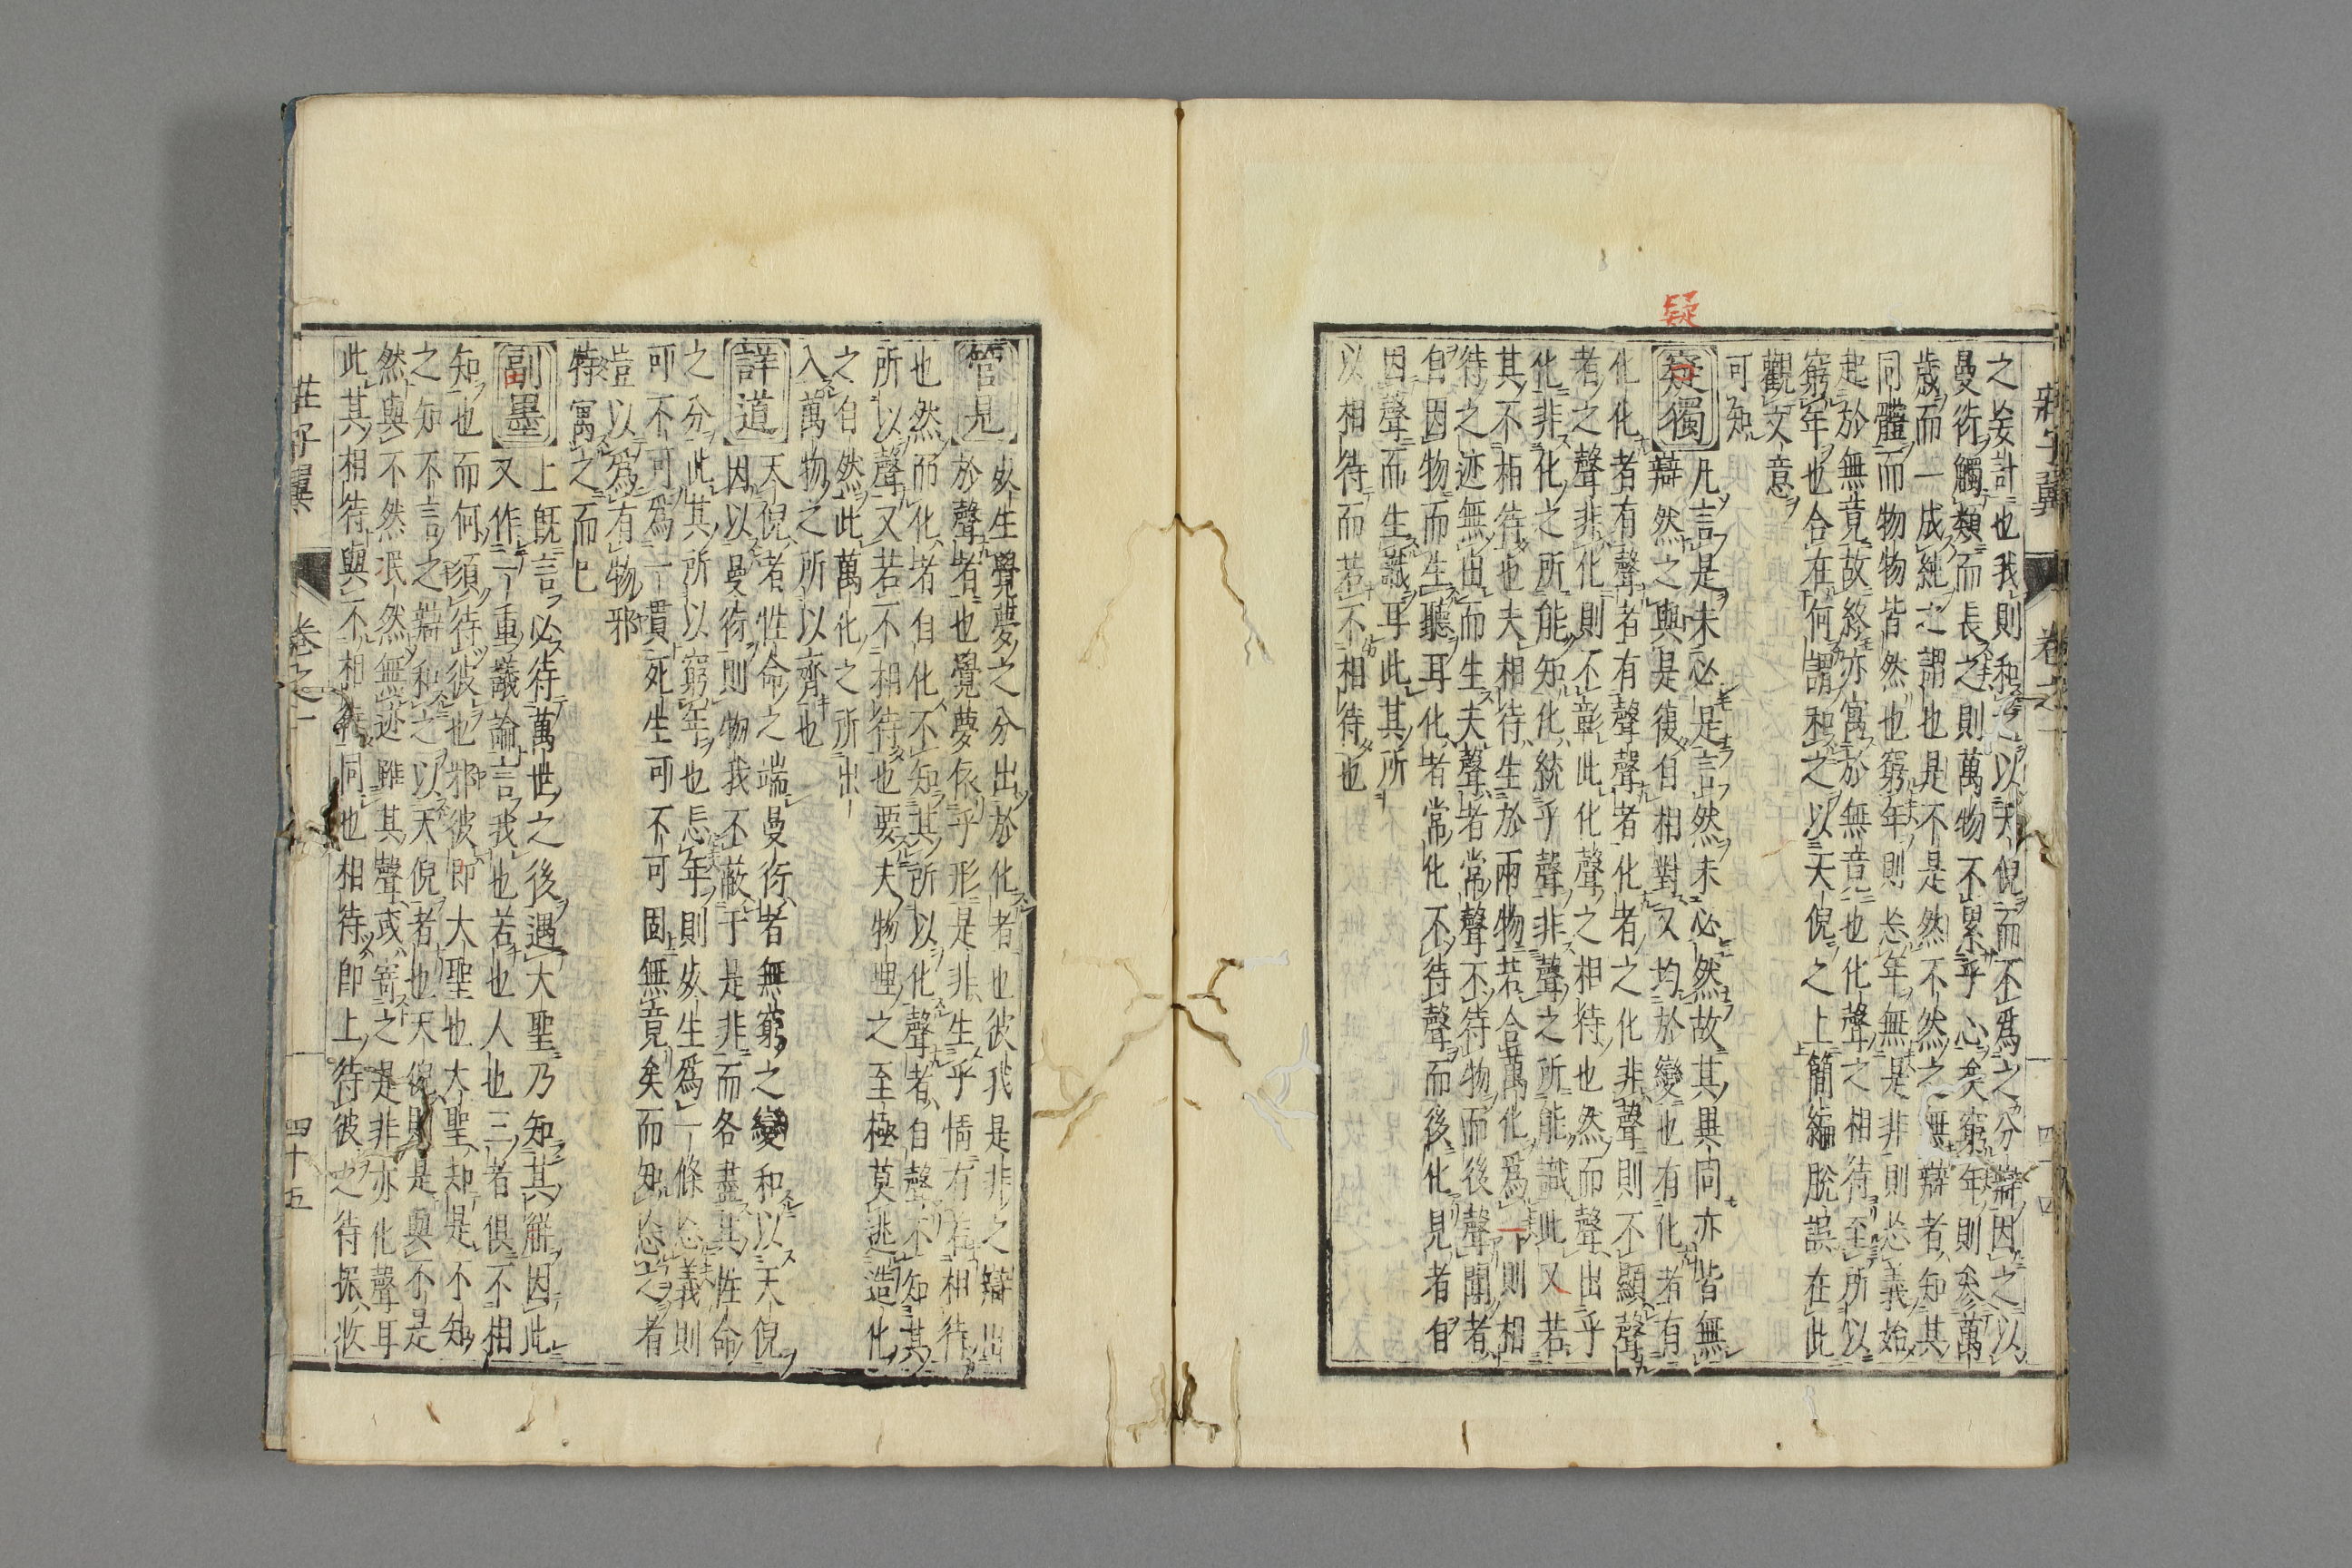 疑
莊子翼 卷之一
之妄計也我則和之以天倪而不爲之分辯因之以
曼衍觸類而長之則萬物不累乎心矣窮年則參萬
歲而一成純之謂也是不是然不然之無辯者知其
同體而物物皆然也窮年則忘年無是非則忘義始
起於無竟故終亦寓於無竟也化聲之相待至所以
窮年也合在何謂和之以天倪之上簡編脫誤在此
觀文意
可知
疑獨 凡言是未必是言然未必然故其異同亦皆無
辯然之與是復自相對又均於變也有化者有
化化者有聲者有聲聲者化者之化非聲則不顯聲
者之聲非化則不彰此化聲之相待也然而聲出乎
化非化之所能知化統乎聲非聲之所能識此又若
其不相待也夫相待生於兩物若合萬化爲一則相
待之迹無由而生夫聲者常聲不待物而後聲聞者
自因物而生聽耳化者常化不待聲而後化見者自
因聲而生識耳此其所
以相待而若不相待也
管見 死生覺夢之分出於化者也彼我是非之辯出
於聲者也覺夢依乎形是非生乎情有若相待
也然而化者自化不知其所以化聲者自聲不知其
所以聲又若不相待也要夫物理之至極莫逃造化
之自然此萬化之所出
入萬物之所以齊也
詳道 天倪者性命之端曼衍者無窮之變和以天倪
因以曼衍則物我不蔽于是非而各盡其性命
之分此其所以窮年也忘年則死生爲一條忘義則
可不可爲一貫死生可不可固無竟矣而知忘之者
豈以爲有物邪
特寓之而已
副墨 上旣言必待萬世之後遇大聖乃知其解因此
又作一重議論言我也若也人也三者俱不相
知也而何須待彼也邪彼即大聖也大聖却是不知
之知不言之辯和之以天倪者也天倪則是與不是
然與不然泯然無迹雖其聲或寄之是非亦化聲耳
此其相待與不相待同也相待即上待彼之待振收
莊子翼 卷之一 四十五